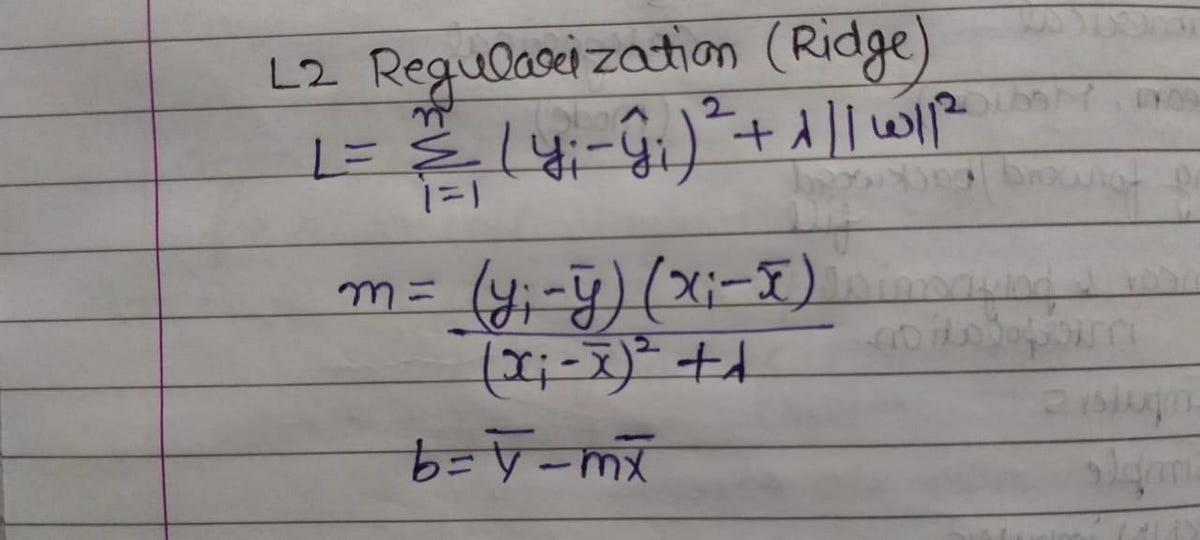 L2 Regularization (Ridge)
L = n Σ i=1 (yi - ŷi)² + λ||w||²
m = (yi - ȳ) (xi - x̄)
(xi - x̄)² + λ
b = ȳ - mx̄